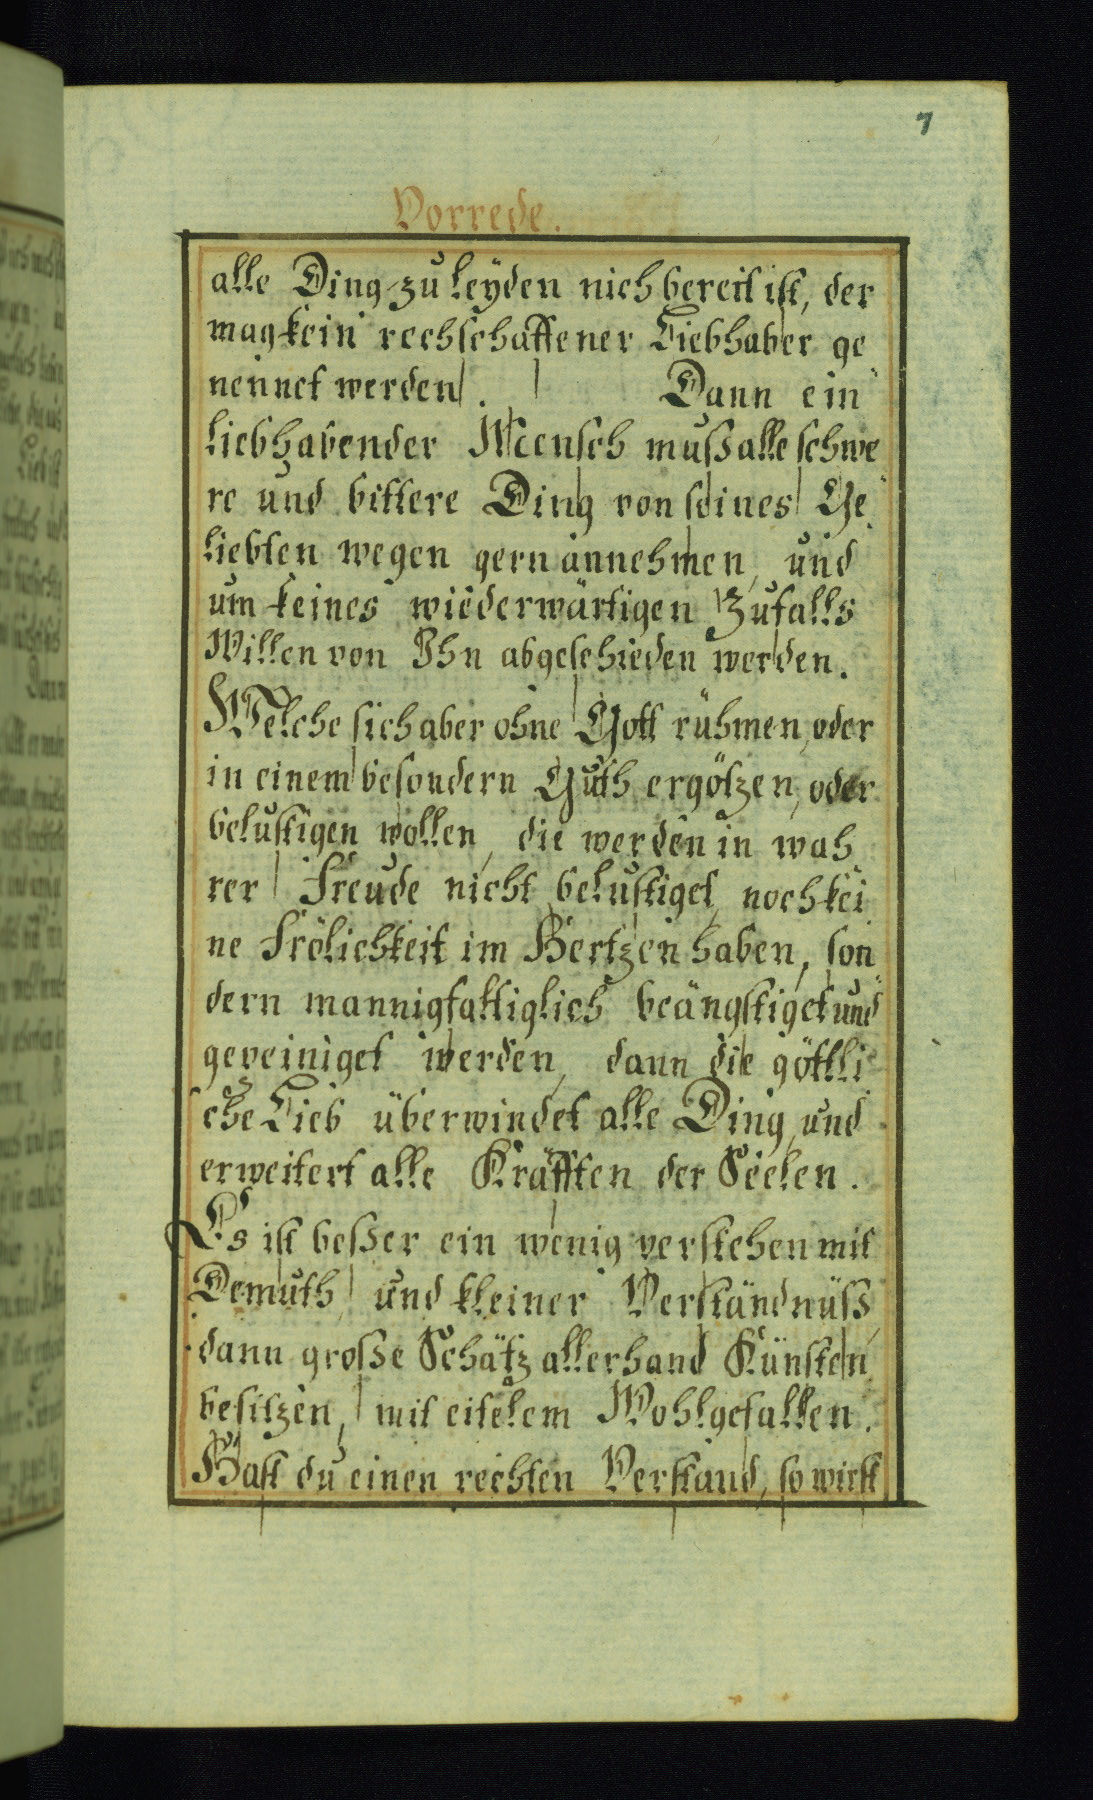 7
Vorrede.
alle Ding zu leyden nich bereit ist, der
mag kein rechschaffener Liebhaber ge
nennet werden. Dann ein
liebhabender Mensch muß alle schwe
re und bittere Ding von seines Ge
liebten wegen gern annehmen, und
um keines wiederwärtigen Zufalls
Willen von Ihn abgeschieden werden.
Welche sich aber ohne Gott rühmen, oder
in einem besondern Guth ergötzen, oder
belustigen wollen, die werden in wah
rer Freude nicht belustiget, noch kei
ne Frölichkeit im Hertzen haben, son
dern mannigfaltiglich beängstiget und
gepeiniget werden, dann die göttli
che Lieb überwindet alle Ding, und
erweitert alle Kräfften der Seelen.
Es ist beßer ein wenig verstehen mit
Demuth, und kleiner Verständnüß,
dann große Schätz allerhand Künsten
besitzen, mit eitelem Wohlgefallen.
Hast du einen rechten Verstand, so wirst